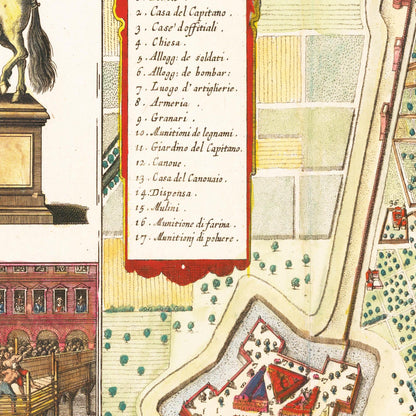 2. Casa del Capitano.
3. Case d'offitiali.
4. Chiesa.
5. Allogg: de soldati.
6. Allogg: de bombar:
7. Luogo d'artiglierie.
8. Armeria.
9. Granari.
10. Munitioni de legnami.
11. Giardino del Capitano.
12. Canoue.
13. Casa del Canouaio.
14. Dispensa.
15. Mulini.
16. Munitione di farina.
17. Munitionj di poluere.